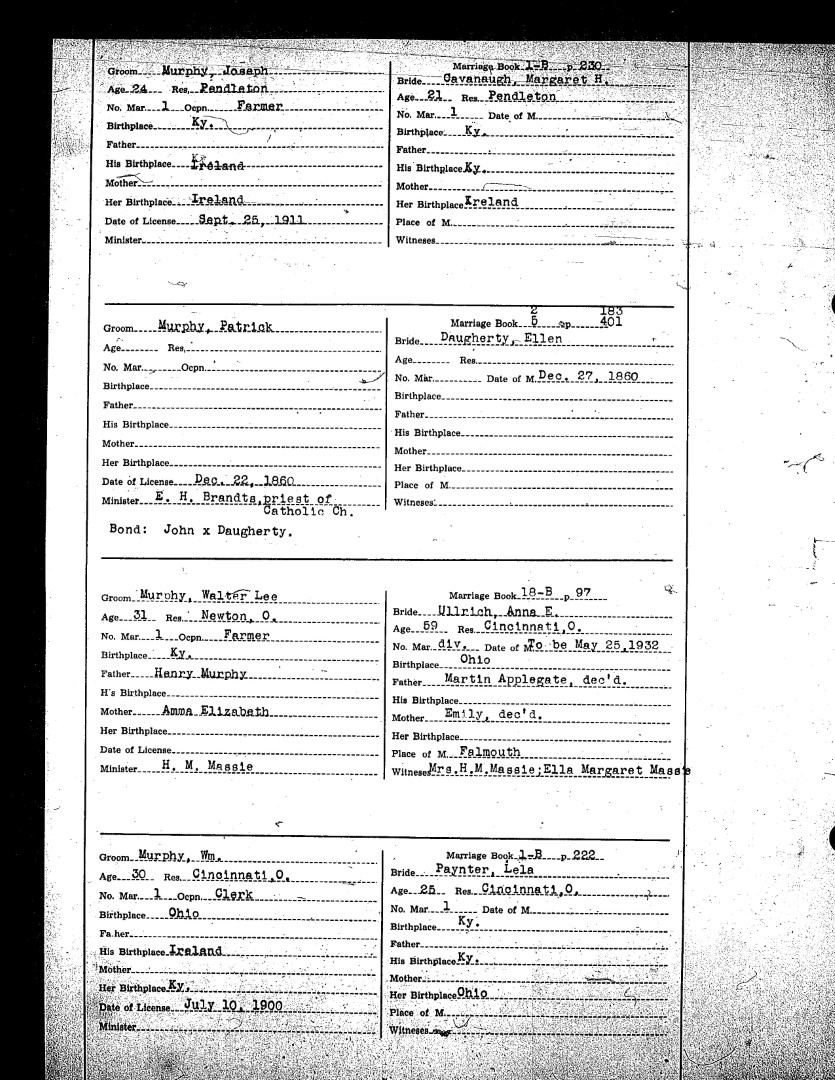 Groom Murphy, Joseph
Age 24 Res. Pendleton
No. Mar. 1 Ocpn. Farmer
Birthplace Ky.
Father
His Birthplace Ireland
Mother
Her Birthplace Ireland
Date of License Sept. 25, 1911
Minister
Marriage Book 1-B p. 230
Bride Cavanaugh, Margaret H.
Age 21 Res. Pendleton
No. Mar. 1 Date of M.
Birthplace Ky.
Father
His Birthplace Ky.
Mother
Her Birthplace Ireland
Place of M.
Witnesses
Groom Murphy, Patrick
Age Res.
No. Mar. Ocpn.
Birthplace
Father
His Birthplace
Mother
Her Birthplace
Date of License Dec. 22, 1860
Minister E. H. Brandts, priest of
Catholic Ch.
Bond: John x Daugherty.
2 183
Marriage Book 5 p. 401
Bride Daugherty, Ellen
Age Res.
No. Mar. Date of M. Dec. 27, 1860
Birthplace
Father
His Birthplace
Mother
Her Birthplace
Place of M.
Witnesses
Groom Murphy, Walter Lee
Age 31 Res. Newton, O.
No. Mar. 1 Ocpn. Farmer
Birthplace Ky.
Father Henry Murphy
H's Birthplace
Mother Amma Elizabeth
Her Birthplace
Date of License
Minister H. M. Massie
Marriage Book 18-B p. 97
Bride Ullrich, Anna E.
Age 59 Res. Cincinnati,O.
No. Mar. div. Date of M. To be May 25,1932
Birthplace Ohio
Father Martin Applegate, dec'd.
His Birthplace
Mother Emily, dec'd.
Her Birthplace
Place of M. Falmouth
Witnesses Mrs.H.M.Massie;Ella Margaret Massie
Groom Murphy, Wm.
Age 30 Res. Cincinnati,O.
No. Mar. 1 Ocpn. Clerk
Birthplace Ohio
Father
His Birthplace Ireland
Mother
Her Birthplace Ky.
Date of License July 10, 1900
Minister
Marriage Book 1-B p. 222
Bride Paynter, Lela
Age 25 Res. Cincinnati,O.
No. Mar. 1 Date of M.
Birthplace Ky.
Father
His Birthplace Ky.
Mother
Her Birthplace Ohio
Place of M.
Witnesses